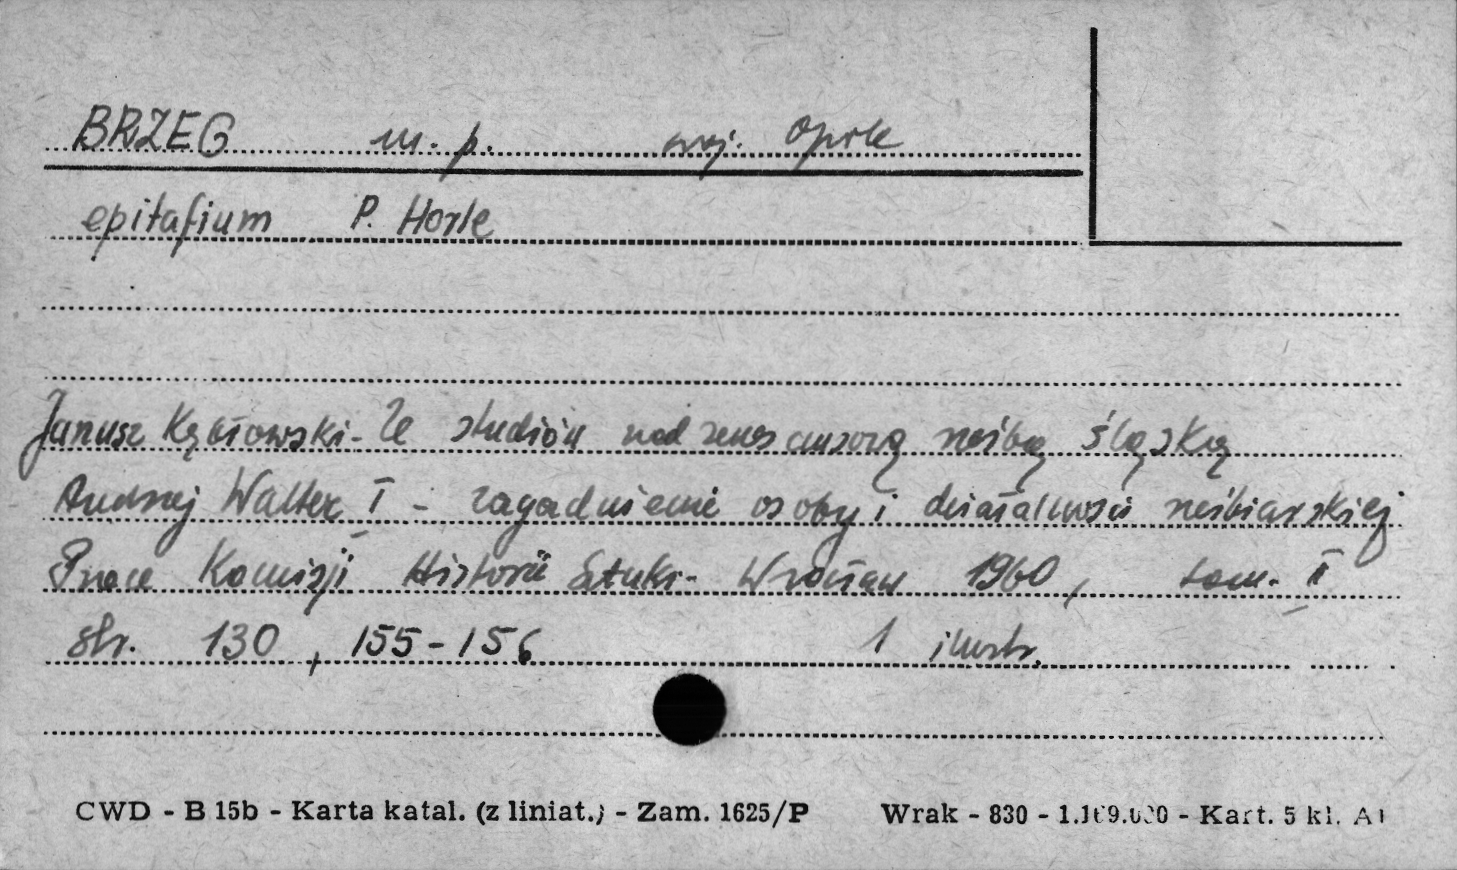 BRZEG m. p. woj. Opole
epitafium P. Horle
Janusz Kębłowski - Ze studiów nad renesansową rzeźbą śląską
Andrzej Walter I - zagadnienie osoby i działalności rzeźbiarskiej
Prace Komisji Historii Sztuki - Wrocław 1960, tom. II
str. 130, 155-156 1 ilustr.
CWD - B 15b - Karta katal. (z liniat.) - Zam. 1625/P Wrak - 830 - - Kart. 5 kl. A1